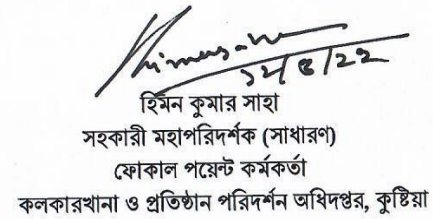 ১২/৪/২২
হিমন কুমার সাহা
সহকারী মহাপরিদর্শক (সাধারণ)
ফোকাল পয়েন্ট কর্মকর্তা
কলকারখানা ও প্রতিষ্ঠান পরিদর্শন অধিদপ্তর, কুষ্টিয়া